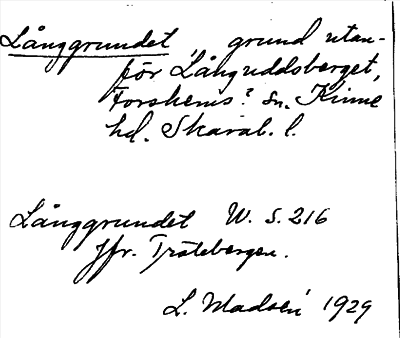 Långgrundet, grund utan-
för Långuddsberget,
Forshems? sn. Kinne
hd. Skarab. l.
Långgrundet W. S. 216
Jfr. Tratebergen.
L. Madsén 1929